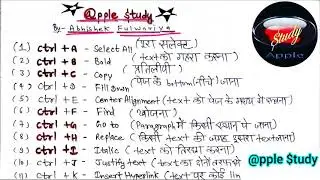 @pple $tudy
By:- Abhishek Fulwariya
(1) ctrl + A - Select All (पूरा सलेक्ट)
(2) ctrl + B - Bold (text को गहरा करना)
(3) ctrl + C - Copy (प्रतिलिपी)
(4) ctrl + D - Fill Down (पेज के bottom (नीचे) जाना)
(5) ctrl + E - Center Alignment (text को पेज के मध्य में
(6) ctrl + F - Find (खोजना)
(7) ctrl + G - Go to (Paragraph में किसी स्थान पे जाना)
(8) ctrl + H - Replace (किसी text की जगह दूसरा text लाना)
(9) ctrl + I - Italic (text को तिरछा करना)
(10) ctrl + J - Justify text (text का दोनों तरफ से
(11) ctrl + K - Insert Hyperlink (text पर कोई lin
Study
Apple
@pple $tudy